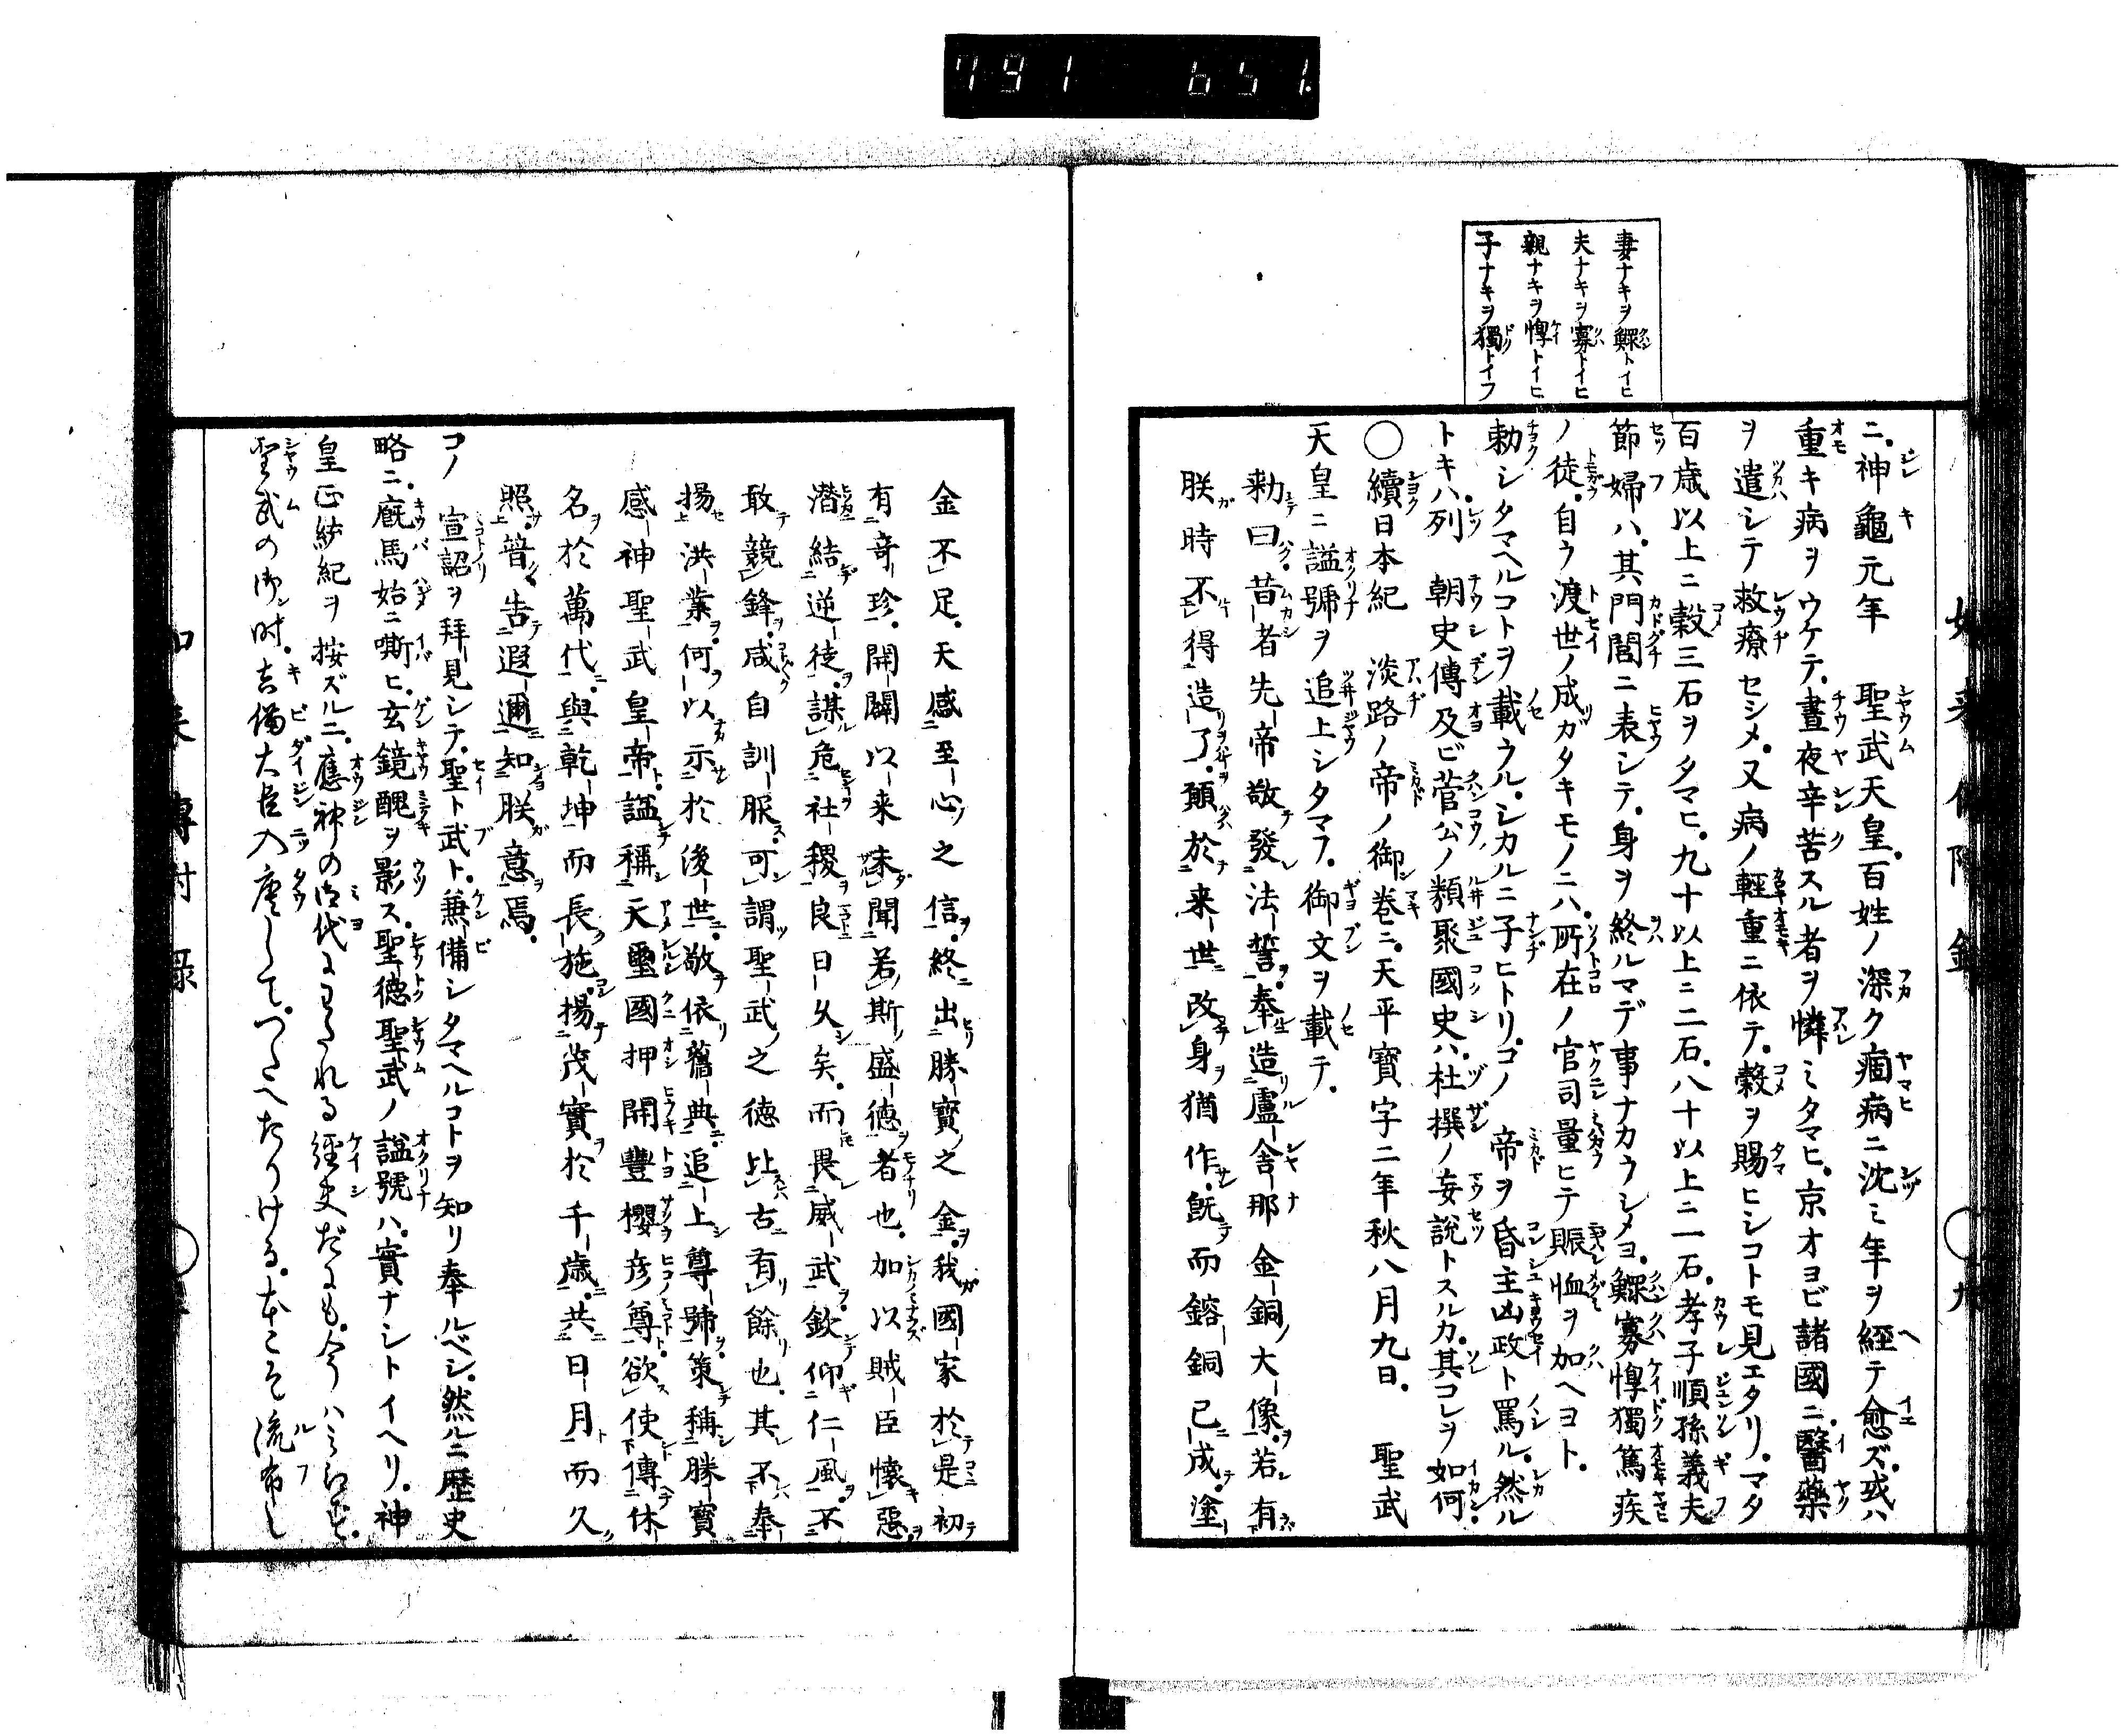 791 651
妻ナキヲ鰥トイヒ
夫ナキヲ寡トイヒ
親ナキヲ惸トイヒ
子ナキヲ獨トイフ
ニ。神龜元年 聖武天皇。百姓ノ深ク痼病ニ沈ミ年ヲ經テ愈ズ。或ハ
重キ病ヲウケテ。晝夜辛苦スル者ヲ憐ミタマヒ。京オヨビ諸國ニ。醫藥
ヲ遣シテ救療セシメ。又病ノ輕重ニ依テ。穀ヲ賜ヒシコトモ見エタリ。マタ
百歳以上ニ穀三石ヲタマヒ。九十以上ニ二石。八十以上ニ一石。孝子順孫義夫
節婦ハ。其門閭ニ表シテ。身ヲ終ルマデ事ナカラシメヨ。鰥寡惸獨篤疾
ノ徒。自ラ渡世ノ成ガタキモノニハ。所在ノ官司量ヒテ賑恤ヲ加ヘヨト。
勅シタマヘルコトヲ載ラル。シカルニ子ヒトリ。コノ 帝ヲ昏主凶政ト罵ル。然ル
トキハ。列 朝史傳及ビ菅公ノ類聚國史ハ。杜撰ノ妄説トスルカ。其コレヲ如何。
〇續日本紀 淡路ノ帝ノ御巻ニ。天平寶字二年秋八月九日。 聖武
天皇ニ謚號ヲ追上シタマフ。御文ヲ載テ。
勅曰。昔者先帝敬發法誓。奉造盧舎那金銅大像。若有
朕時不得造了。願於来世改身猶作。既而鎔銅已成。塗
金不足。天感至心之信。終出勝寶之金。我國家於是初
有奇珍。開闢以来未聞若斯盛德者也。加以賊臣懷惡
潜結逆徒。謀危社稷。良日久矣。而畏威武。欽仰仁風。不
敢競鋒。咸自訓服。可謂聖武之德比古有餘也。其不奉
揚洪業。何以示於後世。敬依舊典。追上尊號。策稱勝寶
感神聖武皇帝。謚稱天璽國押開豐櫻彦尊。欲使傳休
名於萬代。與乾坤而長施。揚茂實於千歳。共日月而久
照。普告遐邇。知朕意焉。
コノ 宣詔ヲ拜見シテ。聖ト武ト。兼備シタマヘルコトヲ知リ奉ルベシ。然ルニ歴史
略ニ。廐馬始ニ嘶ヒ。玄鏡醜ヲ影ス。聖德聖武ノ謚號ハ。實ナシトイヘリ。神
皇正統紀ヲ按ズルニ。應神の御代にわたれる經史だにも。今ハみえず。
聖武の御時。吉備大臣入唐して。つたへたりける。本こそ流布し